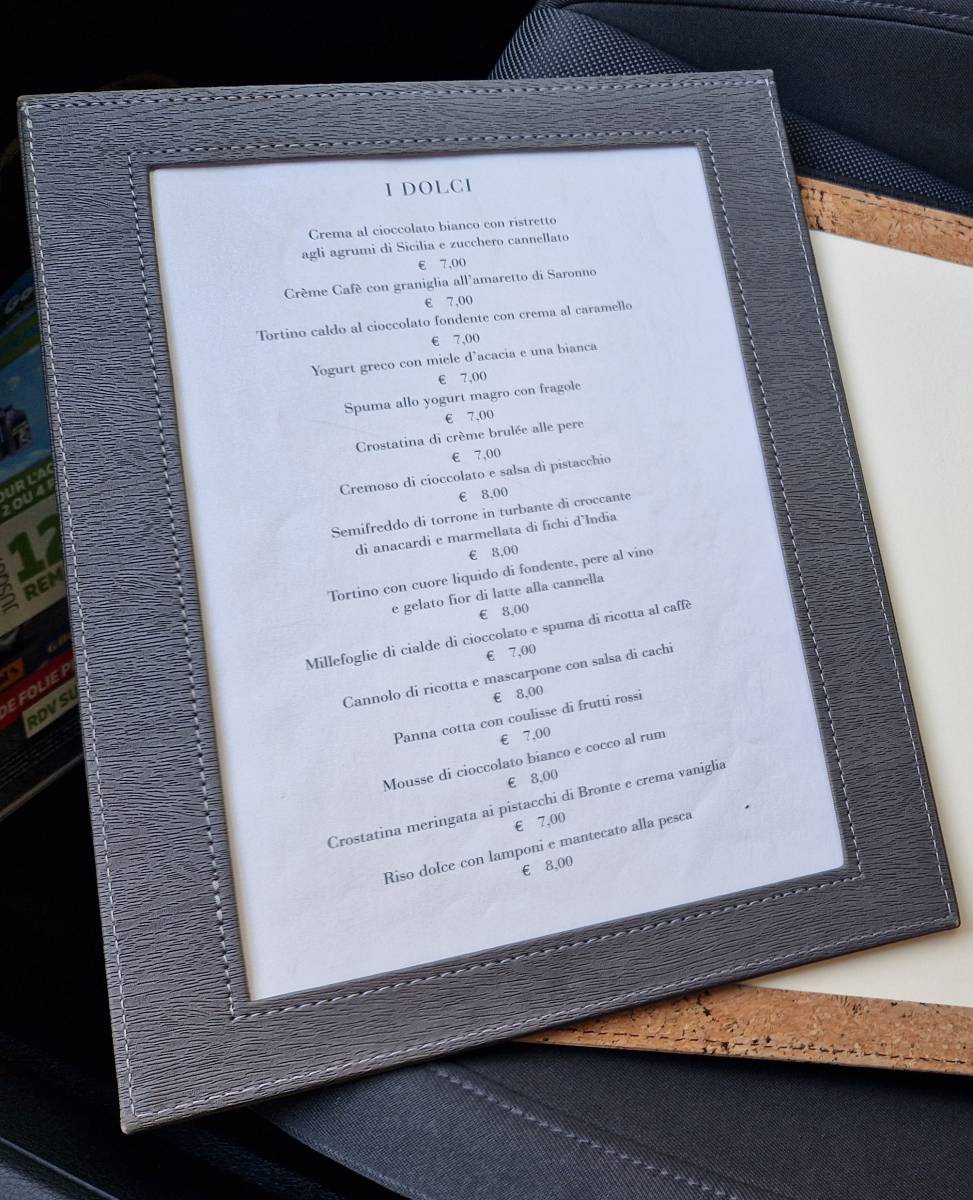 I DOLCI
Crema al cioccolato bianco con ristretto
agli agrumi di Sicilia e zucchero cannellato
€ 7,00
Crème Cafè con graniglia all'amaretto di Saronno
€ 7,00
Tortino caldo al cioccolato fondente con crema al caramello
€ 7,00
Yogurt greco con miele d'acacia e una bianca
€ 7,00
Spuma allo yogurt magro con fragole
€ 7,00
Crostatina di crème brulée alle pere
€ 7,00
Cremoso di cioccolato e salsa di pistacchio
€ 8,00
Semifreddo di torrone in turbante di croccante
di anacardi e marmellata di fichi d'India
€ 8,00
Tortino con cuore liquido di fondente, pere al vino
e gelato fior di latte alla cannella
€ 8,00
Millefoglie di cialde di cioccolato e spuma di ricotta al caffè
€ 7,00
Cannolo di ricotta e mascarpone con salsa di cachi
€ 8,00
Panna cotta con coulisse di frutti rossi
€ 7,00
Mousse di cioccolato bianco e cocco al rum
€ 8,00
Crostatina meringata ai pistacchi di Bronte e crema vaniglia
€ 7,00
Riso dolce con lamponi e mantecato alla pesca
€ 8,00
2 OU 4
12
REM
DE FOLIE
RDV SU